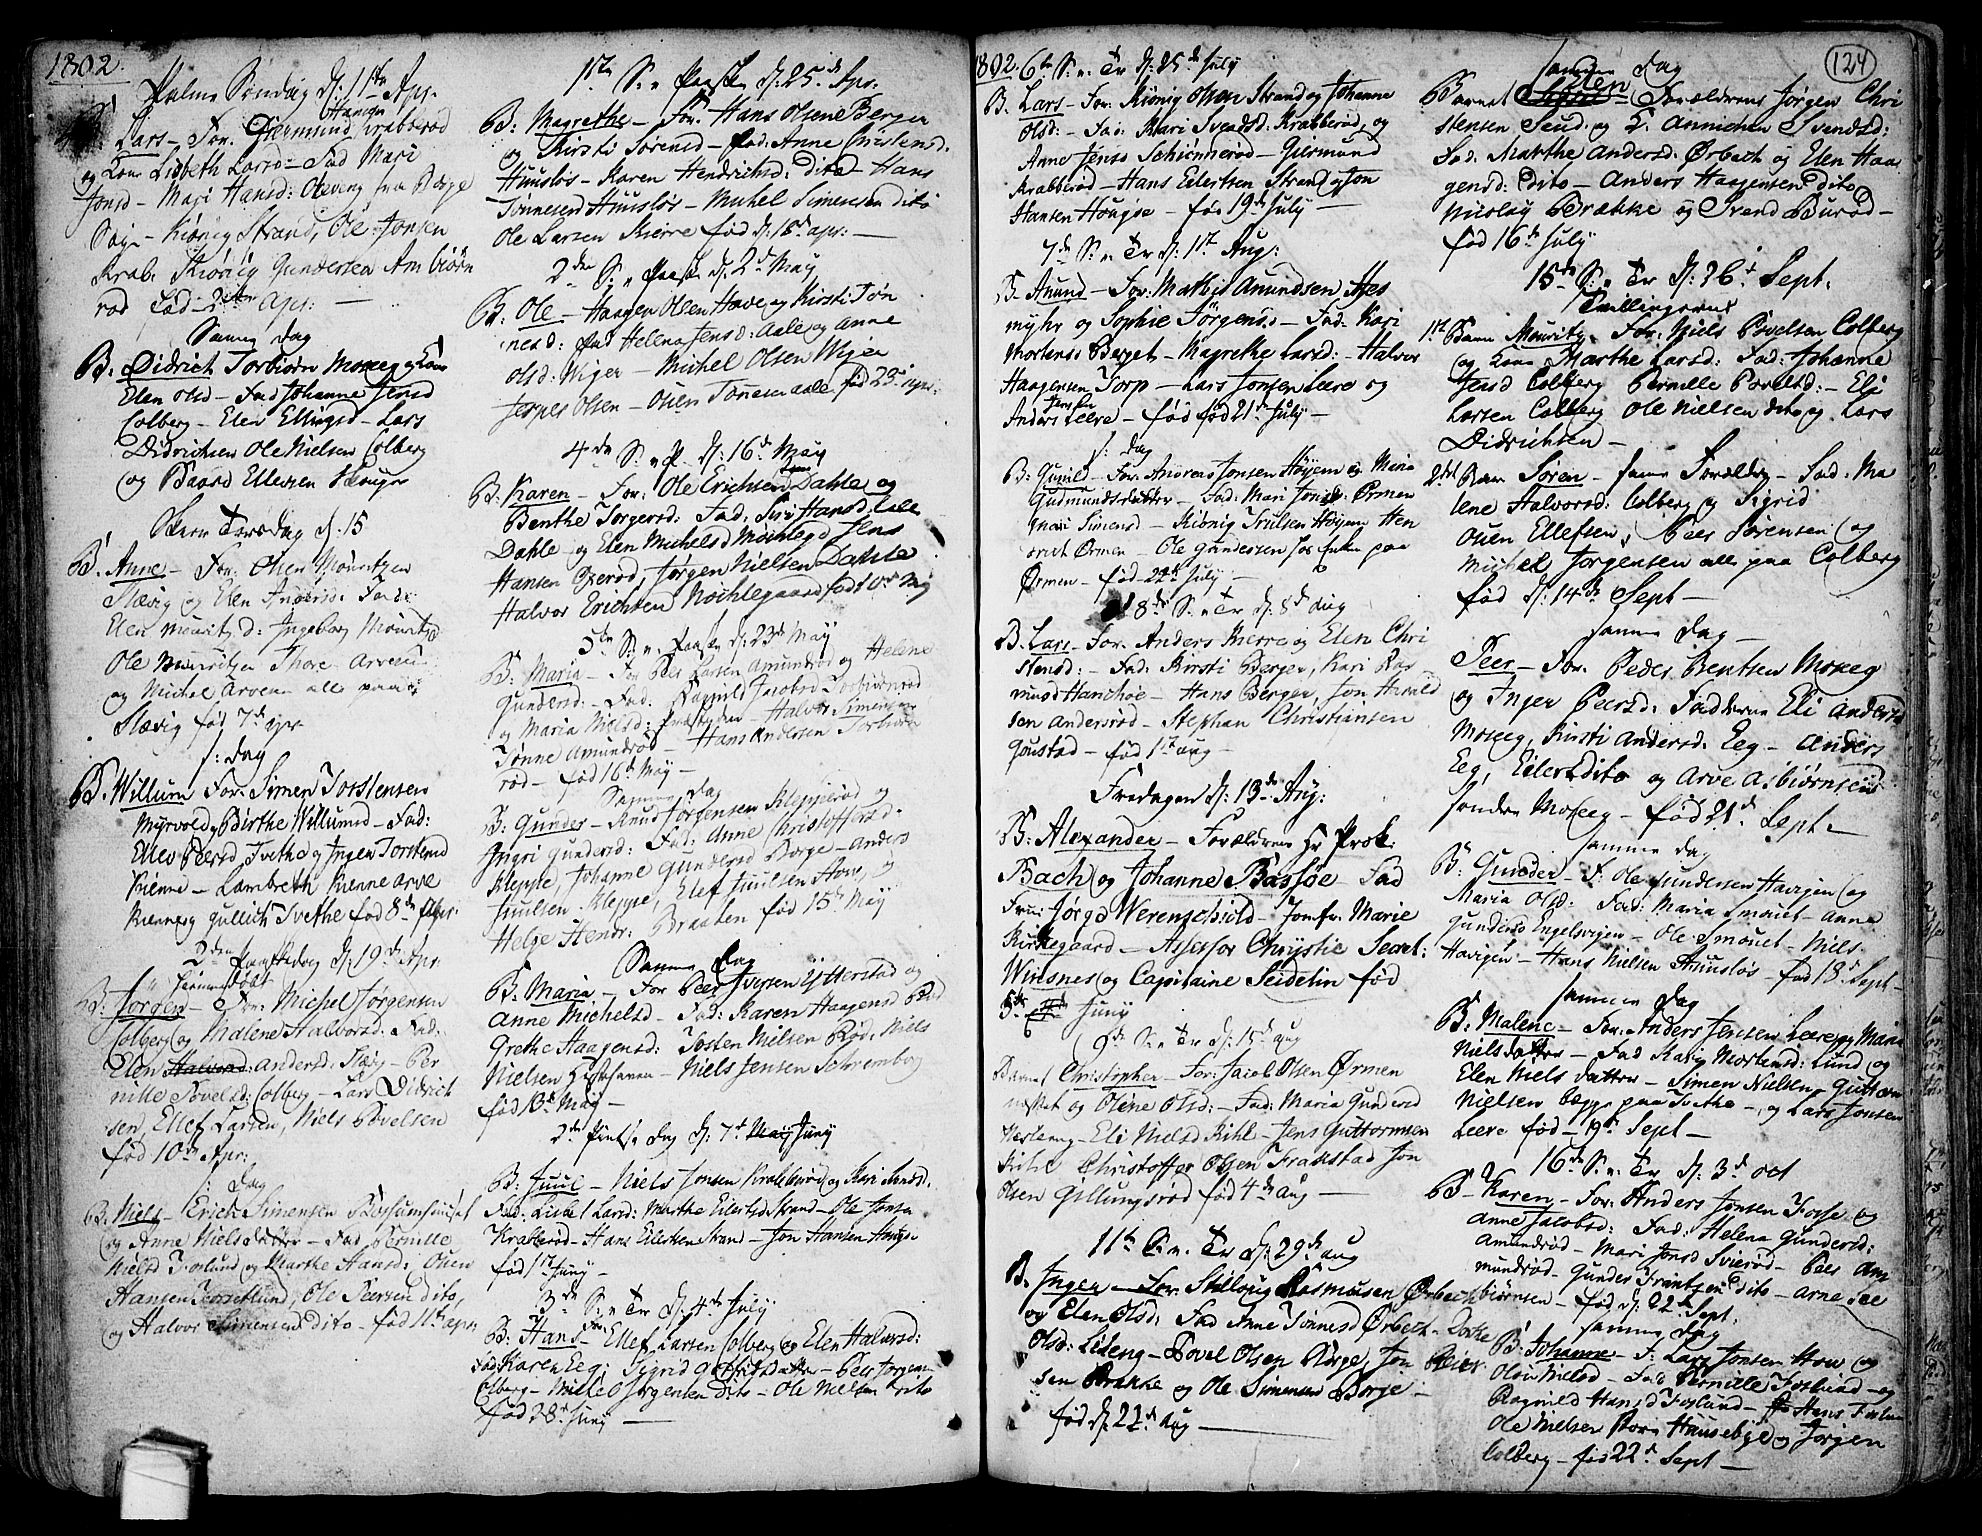 1802.
Palme Søndag d: 11te Apr.
Haagen
Lars – For. Giermund Krabberød
og Kone Lisbeth Larsd – Fad Mari
Jonsd – Mari Hansd: Oleveng fra Borge
Sogn – Kiønig Strand, Ole Jonsen
Krab. Kiønig Gundersen Ambiørn
rød født 2den Apr: –
Samme Dag
B. Didrich Torbiørn Moxeg og Kone
Elen Olsd – Fad Johanne Jensd
Colberg – Elen Ellingsd – Lars
Didrichsen Ole Nielsen Colberg
og Baard Ellevsen Skougr
Skiær Torsdag d: 15
B. Anne – For. Olsen Mouritzen
Slævig og Elen Andersd: Fadr
Elen Mouritzd: Ingeborg Mouritzd
Ole Mouritzen Thore Arvesen
og Michel Arvesen alle paa
Slævig fød 7de apr
s: dag
B. Willum For. Simen Torstensen
Myrvold og Birthe Willumsd – Fad:
Ellev Peersd Tvethe og Ingen Torstensd
Kienne – Lambreth Kienne Arve
Kienne og Gullich Tvethe fød 8de Apr.
2den Paaskedag d: 19de Apr
hiemmedøbt
B: Jørgen – For. Michel Jørgensen
Colberg og Malene Halvorsd. Fad:
Elen Andersd: – Per
nille Povelsd: Colberg – Lars Didrich
sen, Ellef Larsen, Niels Povelsen
fød 10de Apr:
s: Dag
B. Niels – Erich Simensen
og Anne Nielsdatter – Fad Pernille
Nielsd Foslund og Marthe Hansd: Ouen
Hansen, Ole Peersen dito,
og Halvor Simensen dito – fød 11te apr
1ste S: e Paaske d: 25de Apr:
B: Magrethe – For. Hans Olsen Berger
og Kirsti Sørensd – Fad: Anne Christensd.
Huusløs – Karen Hendrichsd: dito Hans
Tønnesen Huusløs – Michel Simensen dito
Ole Larsen Kierre fød d: 15de apr: –
2den S: e Paaske d: 2de May
B: Ole – Haagen Olsen Hove og Kirsti Tøn
nesd: Fad Helena Jensd: Aale og Anne
Olsd: Weger – Michel Olsen Weger
Jesper Olsen – Ouen Tønnesen Aale fød 23de apr.
4de S: e P. d: 16de May
B: Karen – For: Ole Erichsen Dahle og
Benthe Torgersd: Fad: Siri Hansd Lille
Dahle og Elen Michelsd Nøchlegd Jens
Hansen Gierød, Jørgen Nielsen Dahle
Halvor Erichsen Nøchlegaard fød 10de May
5te S: e: Paaske d: 23de May
B: Maria – For Peer Larsen Amundrød og Helene
Gundersd: – Fad. Ragnild Jacobsd Torbiørnrød
og Maria Nielsd: – Halvor Simensen
Tønne Amundrød – Hans Andersen Torbiørn
rød – fød 16de May –
Samme dag
B: Gunder – Knud Jørgensen Kleppe og
Ingri Gundersd: Fad: Anne Christoffersd.
Kleppe, Johanne Gundersd Borge – Anders
Juulsen Kleppe, Elef Juulsen How, og
Helge Hendr: Braaten fød 15de May
Samme Dag
B: Maria – For Peer Iversen Ytterstad og
Anne Michelsd – Fad: Karen Haagensd Rød
Grethe Haagensd: Josten Nielsen Rød, Niels
Nielsen – Niels Jensen Skremberg
fød 13de May –
2den Pintse Dag d: 7de Juny
B: Juul – Niels Jonsen Krabberød og Kari
Fad. Lisbet Larsd: Marthe Eilertsd Strand – Ole Jonsen
Krabberød – Hans Eilertsen Strand – Jon Hansen Hougse
fød 1ste Juny –
3de S: e Tr d: 4de July
B: Hans – Ellef Larsen Colberg og Elen Halvorsd:
Fad Karen Eeg: Sigrid datter – Peer Jørgensen
Colberg – Michel Jørgensen dito – Ole Nielsen dito
fød 28de Juny –
1802. 6te S: e: Tr d: 25de July
B. Lars – For. Kiønig Olsen Strand og Johanne
Olsd: – Fad: Mari Svendsd: Krabberød, og
Anne Jensd Schiønnerød – Giermund
Krabberød – Hans Eilertsen Strand og Jon
Hansen Hougse – fød 19de July –
7de S: e Tr d: 1ste Aug:
B. Anund – For. Mathis Anundsen Hes
myhr og Sophie Jørgensd: – Fad: Kari
Mortensd: Berget – Magrethe Larsd: – Halvor
Haagensen Torp – Lars Jonsen Leere og
Anders Jensen Leere – fød fød 21de July –
s: Dag
B: Gunild – For. Andreas Jonsen Høyen og Maria
Gudmundsdatter – Fad: Mari Jonsd: Ørmen
Mari Simensd – Kiønig Trulsen Høyen, Hen
drich Ørmen – Ole Gundersen hos Enken paa
Ørmen – fød 22de July –
8de S: e Tr d: 8de Aug
B. Lars – For. Anders Kierre og Elen Chri
stensd: – Fad: Kirsti Berger, Kari Ras
musd Hanchøe – Hans Berger, Jon Harald
sen Andersrød – Stephan Christiansen
Goustad – fød 1ste aug –
Fredagen d: 13de Aug:
B: Alexander – Forældrene Hr Prok:
Bach og Johanne Bassøe – Fad
Frue Jørgd Werenschiold – Jomfr. Marie
Kirkegaard – Assessor Chrystie Secret:
Winsnes og Capitaine Seidelin fød
5te Juny
9de S: e Tr d: 15de aug
Barnet Christopher – For: Jacob Olsen Ørmen
og Oline Olsd: – Fad: Maria Gundersd
– Eli Nielsd Kihl – Jens Guttormsen
Kihl Christoffer Olsen Frakstad Jon
Olsen Gillungsrød fød 4de aug –
11te S: e. Tr d: 29de aug
B. Inger – For. Stilloug Rasmusen Ørbech
og Elen Olsd: Fad Anne Tønnesd Ørbech – Dorthe
Olsd: Lileng – Povel Olsen Borge, Jon Peer
sen Brække og Ole Simensen Borge –
fød d: 22de Aug –
124
samme Dag
Elen
Barnet – Forældrene Jørgen Chri
stensen Seud og K. Annichen Svendsd:
Fad. Marthe Andersd: Ørbech og Elen Haa
gensd: dito – Anders Haagensen dito
Nicolay Brække og Svend Burød –
fød 16de July
15de S: e Tr d: 26de Sept.
Tvillingerne
1ste Barn Mouritz – For: Niels Povelsen Colberg
og Kone Marthe Larsd: Fad: Johanne
Jensd Colberg Pernille Povelsd: – Eli
Larsen Colberg Ole Nielsen dito og Lars
Didrichsen –
2det Barn Søren – samme Forældre – Fad: Ma
lene Halvorsd: Colberg og Sigrid
Ouen Ellefsen, Peer Sørensen og
Michel Jørgensen alle paa Colberg
fød d: 14de Sept –
samme dag –
Peer – For. Peder Bentsen Moxeg
og Inger Peersd: Fadderne Eli Andersd
Moxeg, Kirsti Andersd: Eeg – Anders
Eeg, Eilert dito og Arve Asbiørnsen
søndre Moxeg – fød 21de Sept –
samme dag
B: Gunder – F: Ole Gundersen Havigen og
Maria Olsd: Fad: Maria Smouet – Anne
Gundersd Engelsvigen – Ole Smouet – Niels
Havigen – Hans Nielsen Huusløs – fød 18de Sept –
samme Dag
B: Malene – For. Anders Jensen Leere og Maria
Nielsdatter – Fad Kary Mortensd: Lund og
Elen Nielsdatter – Simen Nielsen – Guttorm
Nielsen begge paa Tvethe –, og Lars Jonsen
Leere fød 19de Sept –
16de S: e Tr d: 3de oct
B – Karen – For: Anders Jonsen Fosse og
Anne Jacobsd: Fad: Helena Gundersd:
Amundrød – Mari Jonsd Svierød – Peer Am
mundrød – Gunder Frantsen dito – Arne See
biørnsen – fød d. 22de Sept.
samme dag
B: Johanne – F: Lars Jonsen How og
Olou Nielsd – Fad Pernille Foslund – og
Ragnild Hansd Foslund – Hans Foslund
Ole Nielsen Huusebye og Jørgen
Colberg – fød 22de Sept –